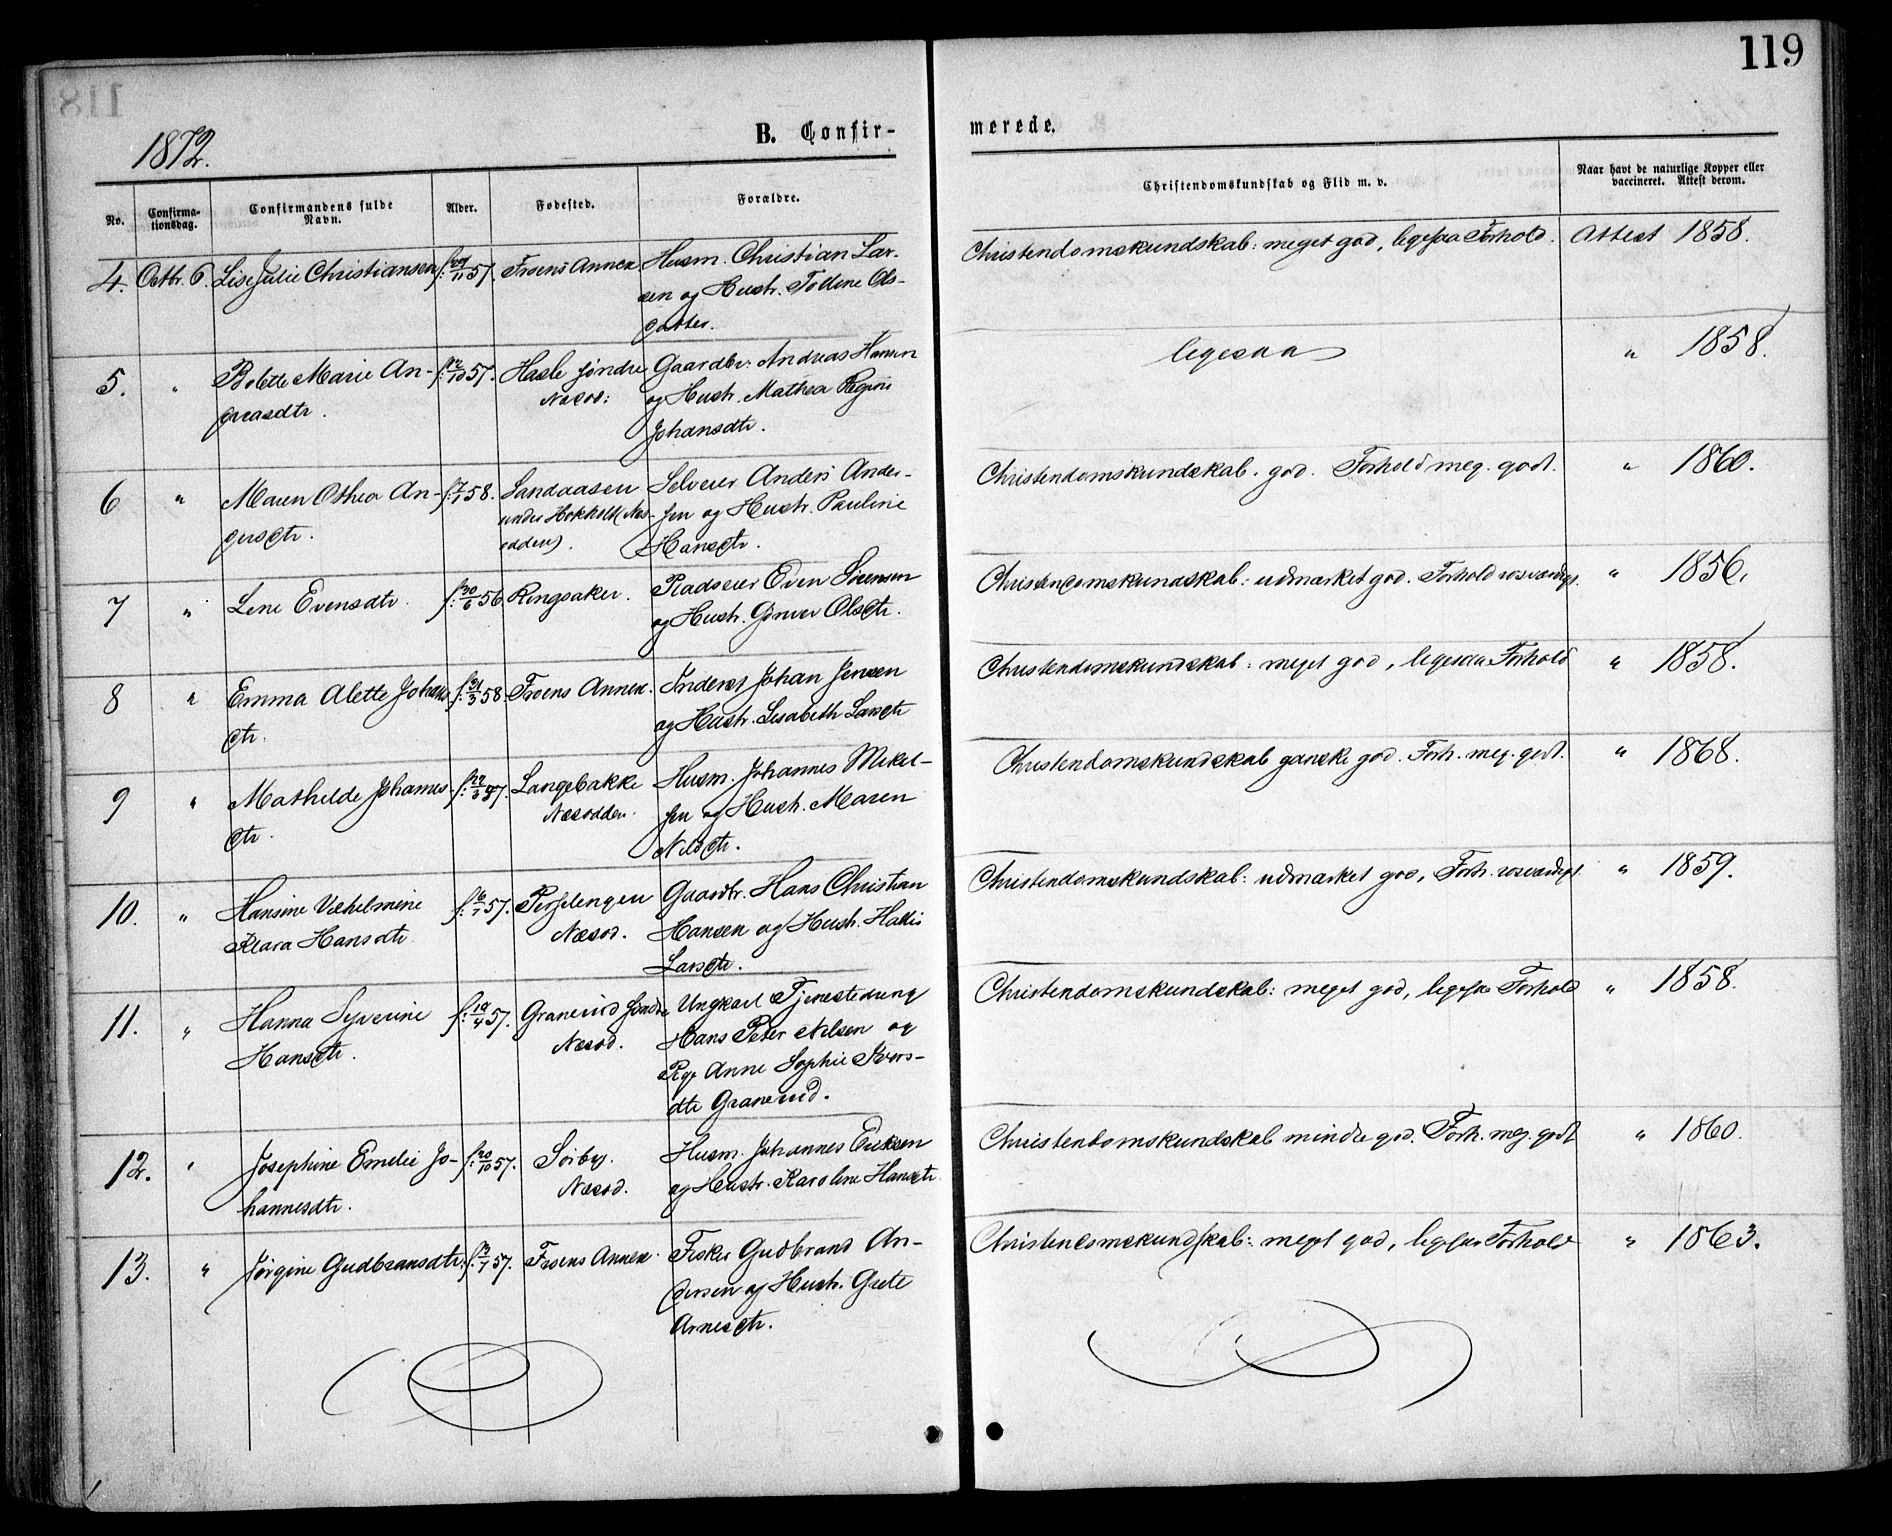 119
1872.
B. Confir-
merede.
No.
Confirma-
tionsdag.
Confirmandens fulde
Navn.
Alder.
Fødested.
Forældre.
Christendomskundskab og Flid m. v.
Naar havt de naturlige Kopper eller
vaccineret. Attest derom.
4. Octbr. 6. Lise Julie Christiansen f: 11 57. Froens Annex Husm. Christian Lar-
sen og Hustr. Ols-
datter.
Christendomskundskab: meget god, ligesaa Forhold. Attest 1858.
5. " Bolette Marie An- f: 12/10 57. Hasle søndre Gaardbr: Andreas Hansen
dreasdtr. Næsod: og Hustr. Mathea Regine
Johansdtr.
ligesaa " 1858.
6 " Maren Othea An- f: 7/1 58. Sandaasen Selveier Anders Ander-
dersdtr. under Hokholt (Næs- sen og Hustr. Pauline
odden). Hansdtr.
Christendomskundskab. god. Forhold meg. godt. " 1860.
7 " Lene Evensdtr. f: 30/6 56 Ringsaker. Pladseier Even Sørensen
og Hustr. Olsdtr.
Christendomskundskab: udmærket god. Forhold rosværdigt. " 1856.
8 " Emma Alette Johans f: 31/3 58. Froens Annex. Inderst Johan Jensen
dtr. og Hustr. Lisabeth Larsdtr
Christendomskundskab: meget god, ligesaa Forhold " 1858.
9 " Mathilde Johannes- f: 57. Langebakke Husm. Johannes Mikel-
dtr. Næsodden. sen og Hustr. Maren
Nilsdtr.
Christendomskundskab ganske god. Forh. meg. godt. " 1868.
10. " Hansine Vilhelmine f: 57. Gaardbr. Hans Christian
Klara Hansdtr. Næsod. Hansen og Hustr.
Larsdtr.
Christendomskundskab: udmærket god, Forh. rosværdigt " 1859.
11. " Hanna Syverine f: 19/4 57. Granerud søndre Ungkarl Tjenestedreng
Hansdtr. Næsod. Hans Peter Nilsen og
Pige Anne Sophie
dtr Granerud.
Christendomskundskab: meget god, ligesaa Forhold " 1858.
12. " Josephine Emelie Jo- f: 20/10 57. Soiby. Husm. Johannes Eriksen
hannesdtr. Næsod. og Hustr. Karoline Hansdtr
Christendomskundskab mindre god. Forh. meg. godt " 1860.
13. " Jørgine Gudbransdtr. f: 57. Froens Annex. Fisker Gudbrand An-
dersen og Hustr. Grete
Arnesdtr.
Christendomskundskab: meget god, ligesaa Forhold " 1863.